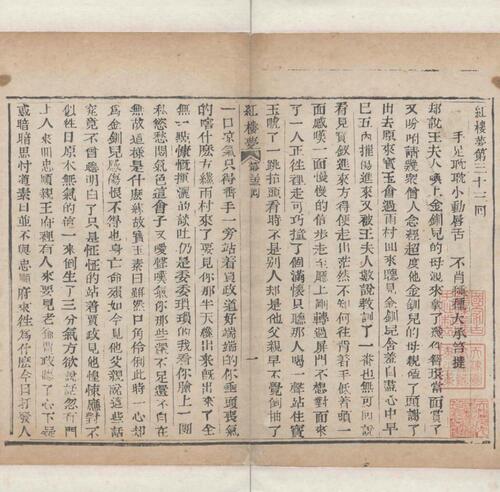 紅樓夢第三十三回
手足耽耽小動唇舌　不肖種種大承笞撻
却說王夫人喚上金釧兒的母親來拿了幾件簪環當面賞了
又吩咐請幾衆僧人念經超度他金釧兒的母親磕了頭謝了
出去原來寳玉會過雨村回來聽見金釧兒含羞自盡心中早
已五內摧傷進來又被王夫人數說教訓了一番也無可回說
看見寳釵進來方得便走出茫然不知何往背着手低着頭一
面感嘆一面慢慢的信步走至廳上剛轉過屏門不想對面來
了一人正往裡走可巧撞了個滿懷只聽那人喝一聲站住寳
玉唬了一跳抬頭看時不是别人却是他父親早不覺倒抽了
紅樓夢 第三十三回 一
一口凉氣只得垂手一旁站着賈政道好端端的你垂頭喪氣
的嗐什麽方纔雨村來了要見你那半天纔出來既出來了全
無一點慷慨揮灑的談吐仍是委委瑣瑣的我看你臉上一團
私慾愁悶氣色這會子又嘆氣你那些還不足還不自在
無故這樣是什麽緣故寳玉素日雖然口角伶俐此時一心却
為金釧兒感傷恨不得也身亡命殞如今見他父親說這些話
究竟不曾聽明白了只是怔怔的站着賈政見他惶悚應對不
似徃日原本無氣的這一來倒生了三分氣方欲說話忽有門
上人來回忠順親王府裡有人來要見老爺賈政聽了心下疑
或暗暗思忖道素日並不與忠順府來徃為什麽今日打發人